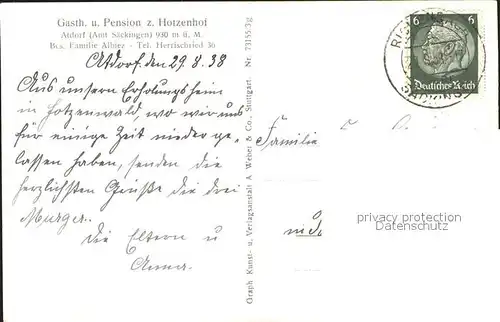 Gasth. u. Pension z. Hotzenhof
Atdorf (Amt Säckingen) 930 m ü. M.
Bes. Familie Albiez - Tel. Herrischried 36
Atdorf den 29.8.38
Aus unserm Erholungsheim
in Hotzenwald wo wir uns
für einige Zeit niederge-
lassen haben, senden die
herzlichsten Grüße die drei
Murger.
Die Eltern u
Anna.
Graph. Kunst- u. Verlagsanstalt A. Weber & Co., Stuttgart. Nr. 73155/3g
6 6
Deutsches Reich
Familie
privacy protection